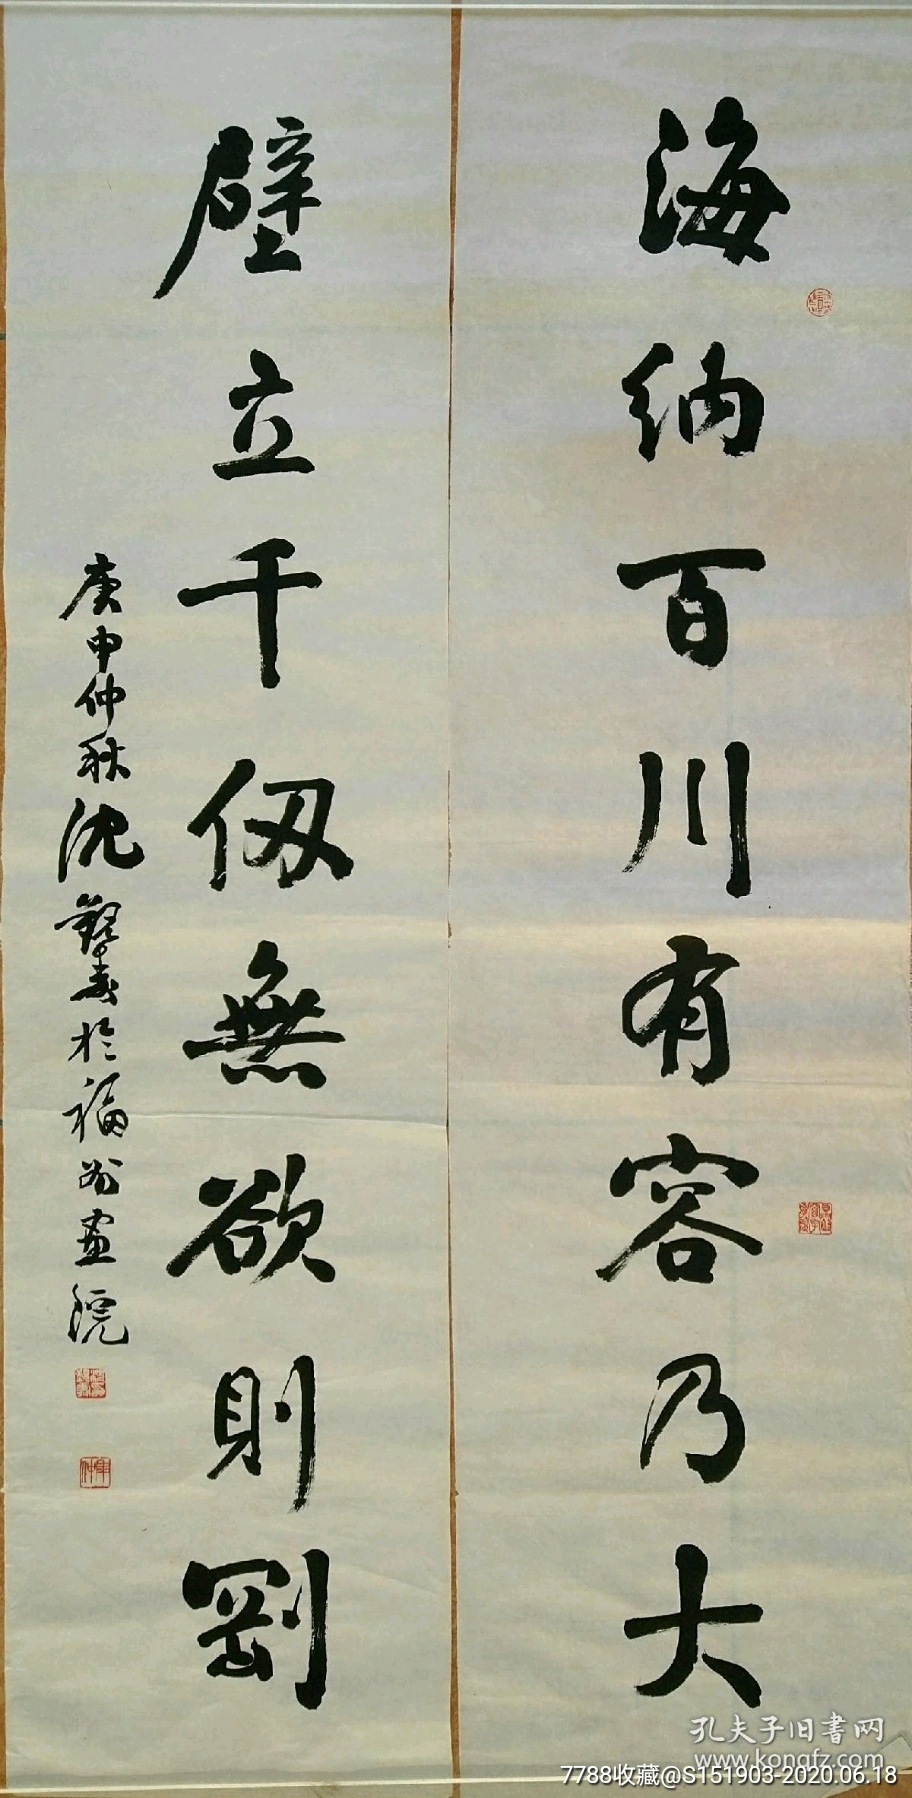 海纳百川有容乃大
壁立千仞無欲則剛
庚申仲秋沈觐寿於福州画院
孔夫子旧書网
www.kongfz.com
7788收藏@S151903-2020.06.18